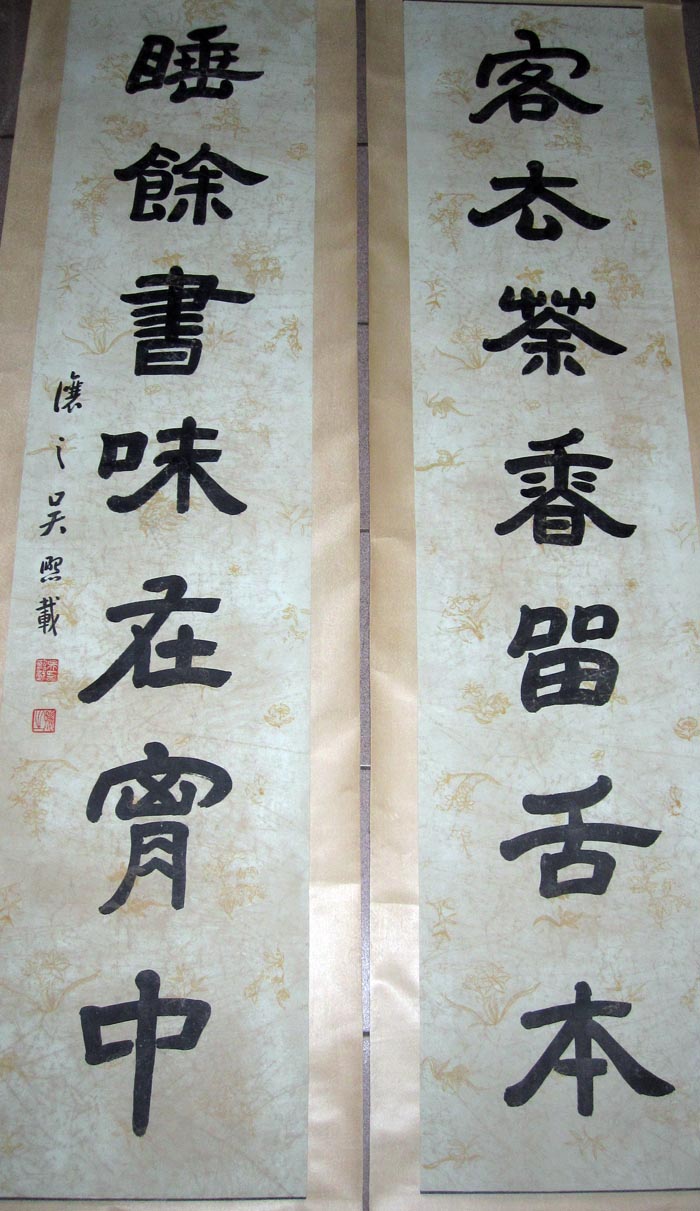 客去茶香留舌本
睡餘書味在胷中
讓之吳熙載